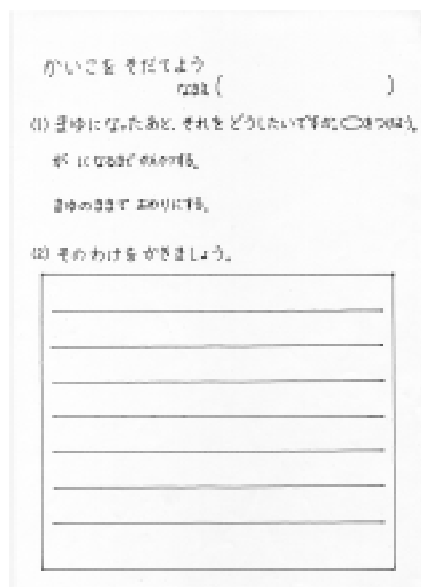 かいこを そだてよう
なまえ (                    )
(1) まゆになったあと、それを どうしたいですか。○をつけよう。
が になるまで せわする。
まゆのままで おわりにする。
(2) そのわけを かきましょう。